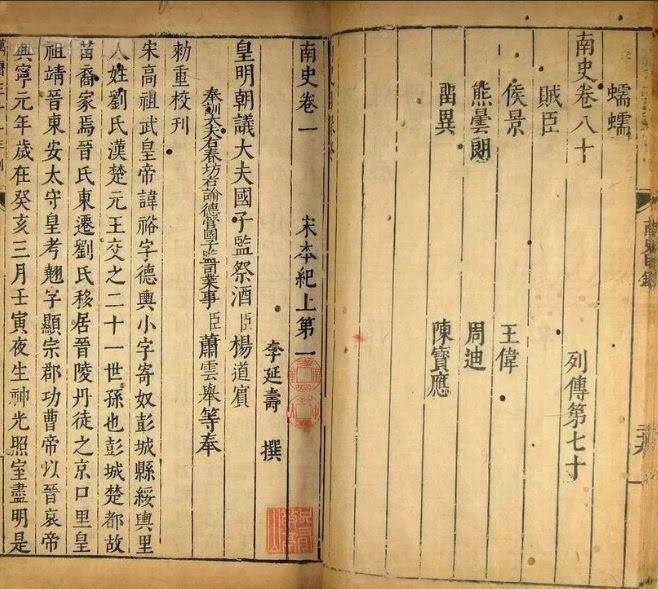 蠕蠕
南史卷八十　列傳第七十
賊臣
侯景　王偉
熊曇朗　周迪
畱異　陳寶應
南史卷一　宋本紀上第一
李延壽　撰
皇明朝議大夫國子監祭酒臣楊道賓
奉訓大夫右春坊右諭德管國子監司業事臣蕭雲舉等奉
勑重校刊
宋高祖武皇帝諱裕字德輿小字寄奴彭城縣綏輿里
人姓劉氏漢楚元王交之二十一世孫也彭城楚都故
苗裔家焉晉氏東遷劉氏移居晉陵丹徒之京口里皇
祖靖晉東安太守皇考翹字顯宗郡功曹帝以晉哀帝
興寧元年歲在癸亥三月壬寅夜生神光照室盡明是